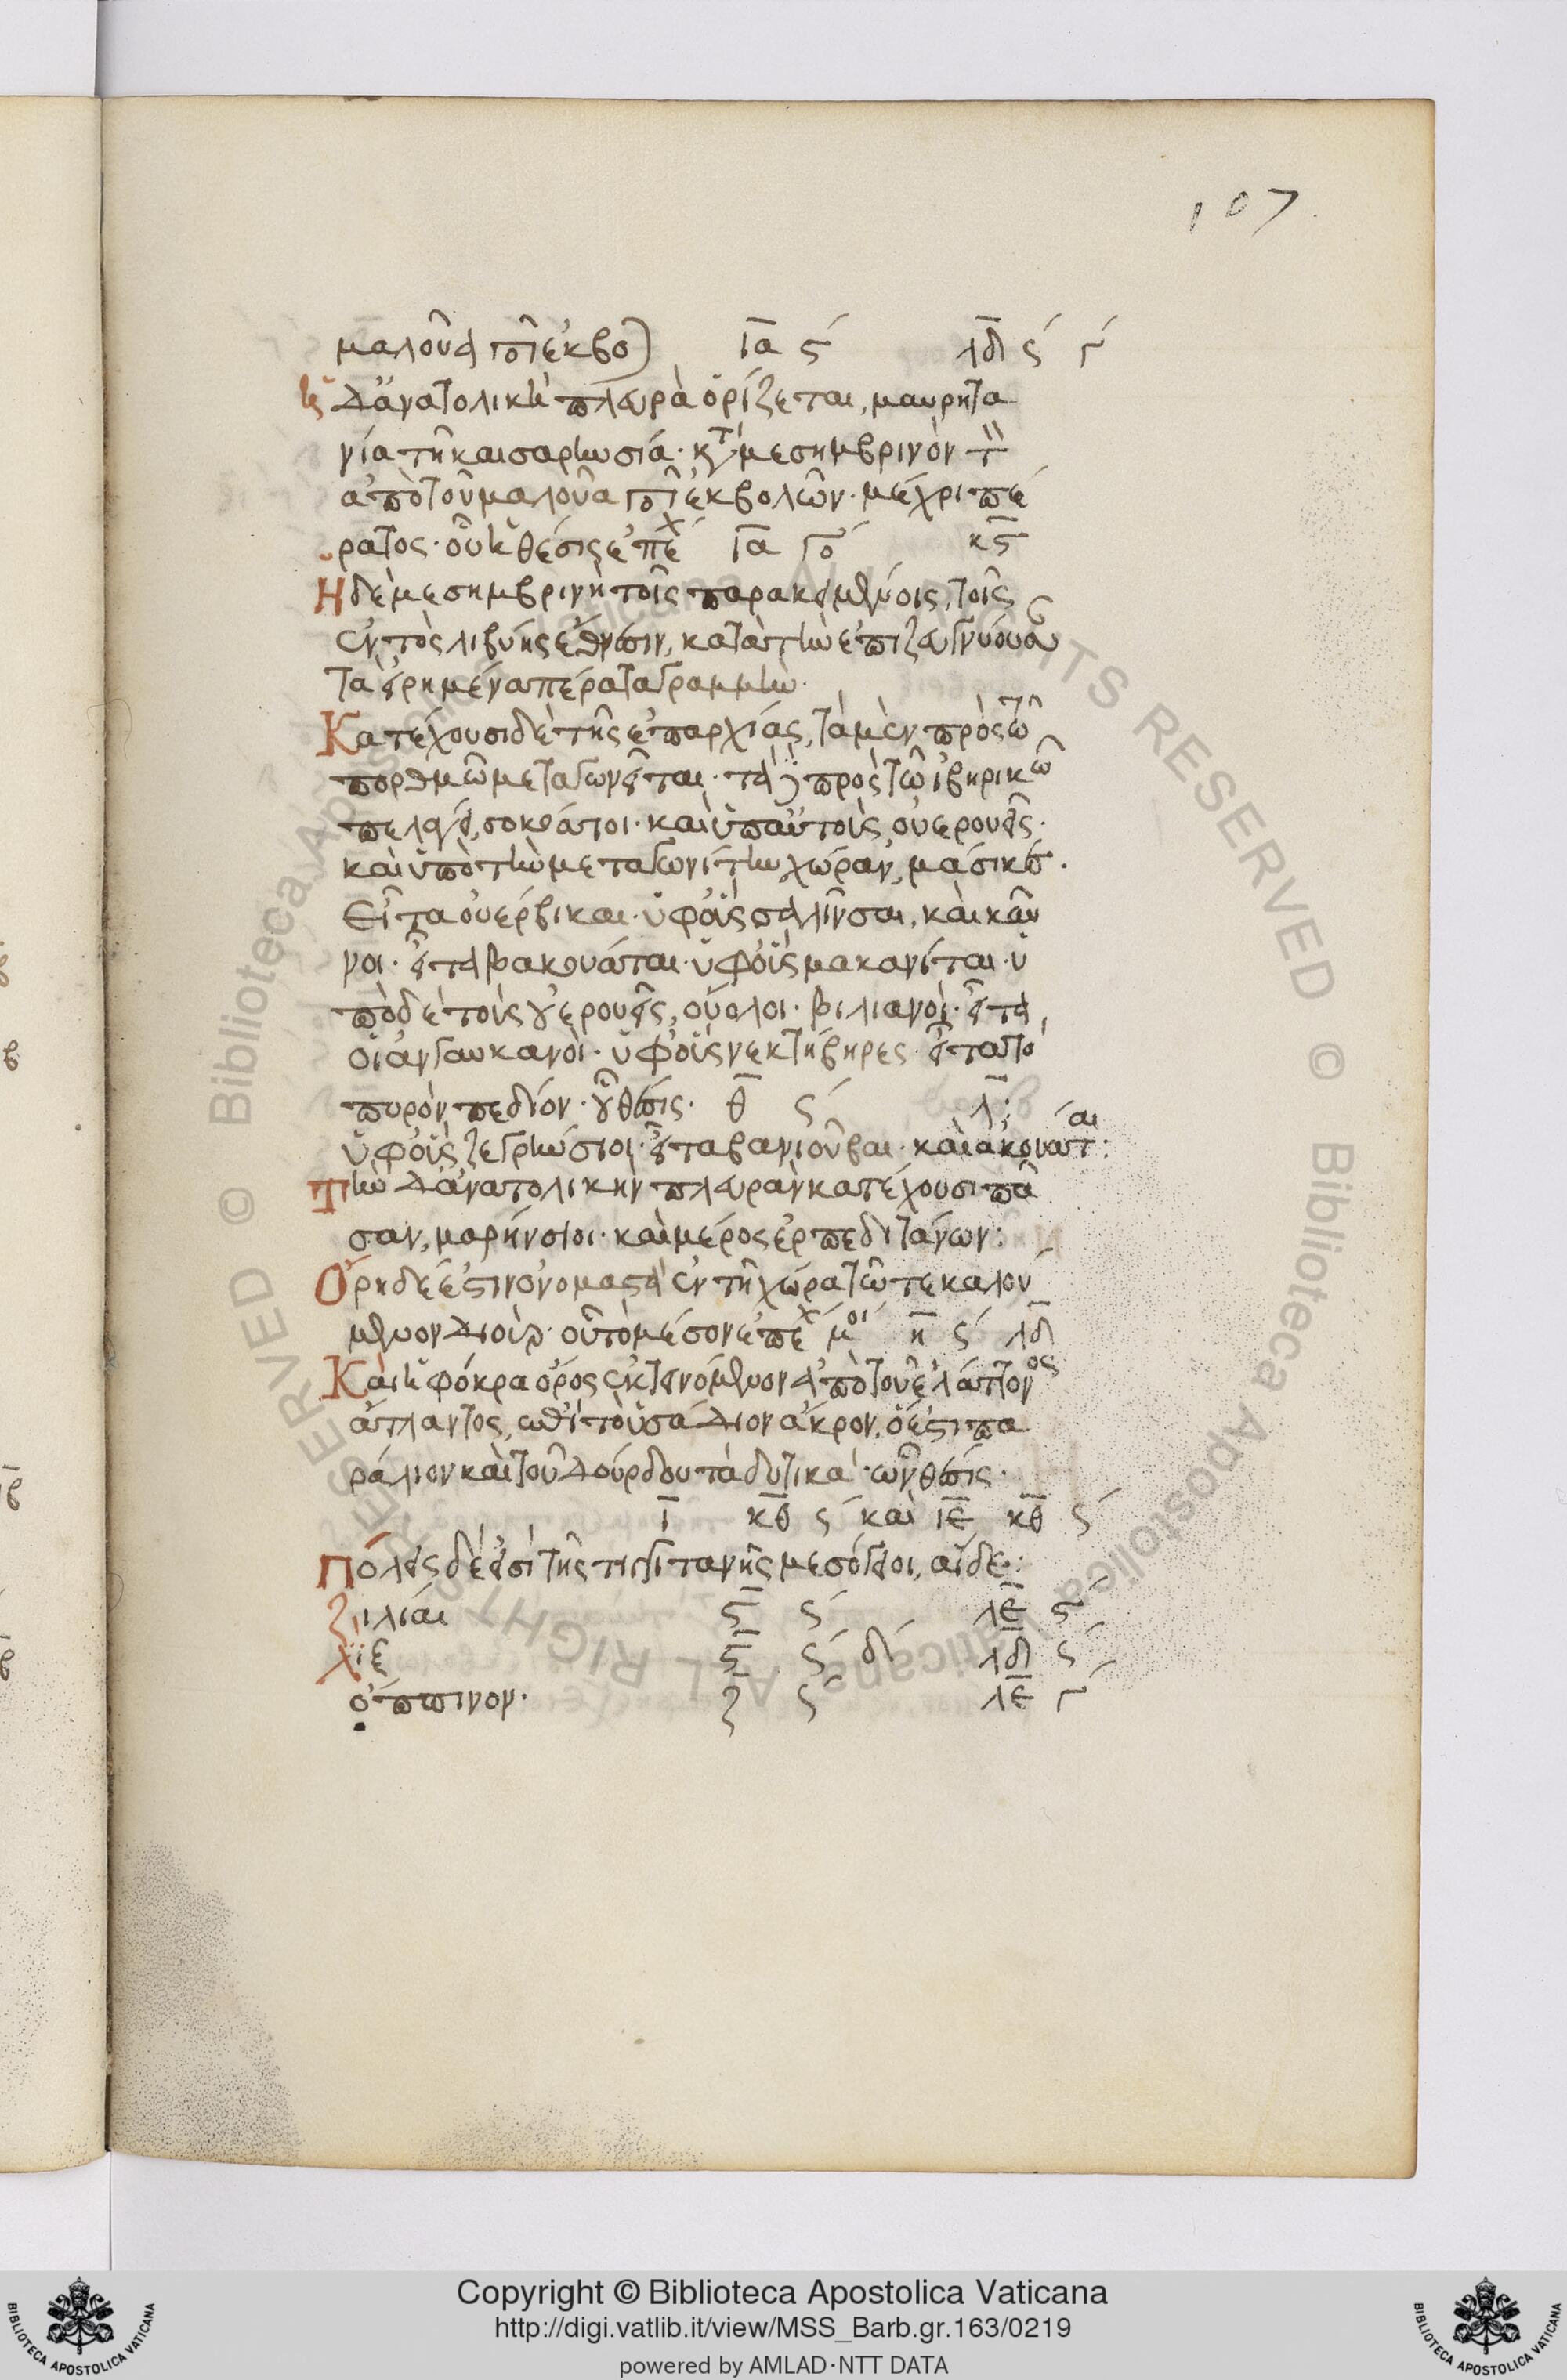 107
μαλούα ποτ ἐκβο ια ς λδ ς γ
ἡ δ ἀνατολικὴ πλευρὰ ὁρίζεται, μαυρητα
νία τῆ καισαρηνσία· κτ μεσημβρινὸν τ
ἀπὸ τοῦ μαλούα ποτ ἐκβολῶν· μέχρι πέ
ρατος· οὗ ἡ θέσις ἐπέχ ια γο κς
Ἡ δὲ μεσημβρινὴ τοῖς παρακειμένοις, τοῖς
ἐντὸς λιβύης ἔθνεσιν, κατὰ τὴν ἐπιζευγνύουσαν
τὰ εἰρημένα πέρατα γραμμήν.
Κατέχουσι δὲ τῆς ἐπαρχίας, τὰ μὲν πρὸς τῶ
πορθμῶ μεταγωνεῖται· τὰ δὲ πρὸς τῶ ἰβηρικῶ
πελάγει, σοκράτοι· καὶ ὑπ αὐτοὺς οὐερουεῖς·
καὶ ὑπὸ τὴν μεταγωνίτην χώραν, μάσικες.
Εἶτα οὐέρβικαι· ὑφ οὓς σαλῖνσαι, καὶ καῦ
νοι· εἶτα βακουάται· ὑφ οὓς μακανίται· ὑ
πὸ δὲ τοὺς οὐερουεῖς, οὐόλοι· βιλιανοὶ· εἶτα
οἱ ἀνγαυκανοὶ· ὑφ οὓς νεκτήβηρες· εἶτα τὸ
πυρὸν πεδίον· οὗ θέσις· θ ς λ:
ὑφ οὓς ζεγρήνσιοι· εἶτα βανιοῦβαι· καὶ ἀκουάται:
Τὴν δ ἀνατολικὴν πλευρὰν κατέχουσι πᾶ
σαν, μαρήνσιοι· καὶ μέρος ἑρπεδιτάνων:
Ὄρη δέ ἐστιν ὀνομαστὰ ἐν τῆ χώρα τῶ τε καλου
μενον διούρ· οὗ τὸ μέσον ἐπέχ μοι η ς λδ
Καὶ ἡ φόκρα ὄρος ἐκτεινόμενον ἀπὸ τοῦ ἐλάττονος
ἄτλαντος, ἐπὶ τοῦσάδιον ἄκρον, ὅ ἐστι πα
ράλιον καὶ τοῦ δούρδου τὰ δυτικὰ· ὧν θέσις·
ι κθ ς καὶ ιε κθ ς
Πόλεις δέ εἰσὶ τῆς τιγγιτανῆς μεσόγειοι, αἵδε:
ζιλίαι ς ς λε ς
χίε ς ς δ λδ ς
ὄππινον· ζ ς λε γ
Copyright © Biblioteca Apostolica Vaticana
http://digi.vatlib.it/view/MSS_Barb.gr.163/0219
powered by AMLAD·NTT DATA